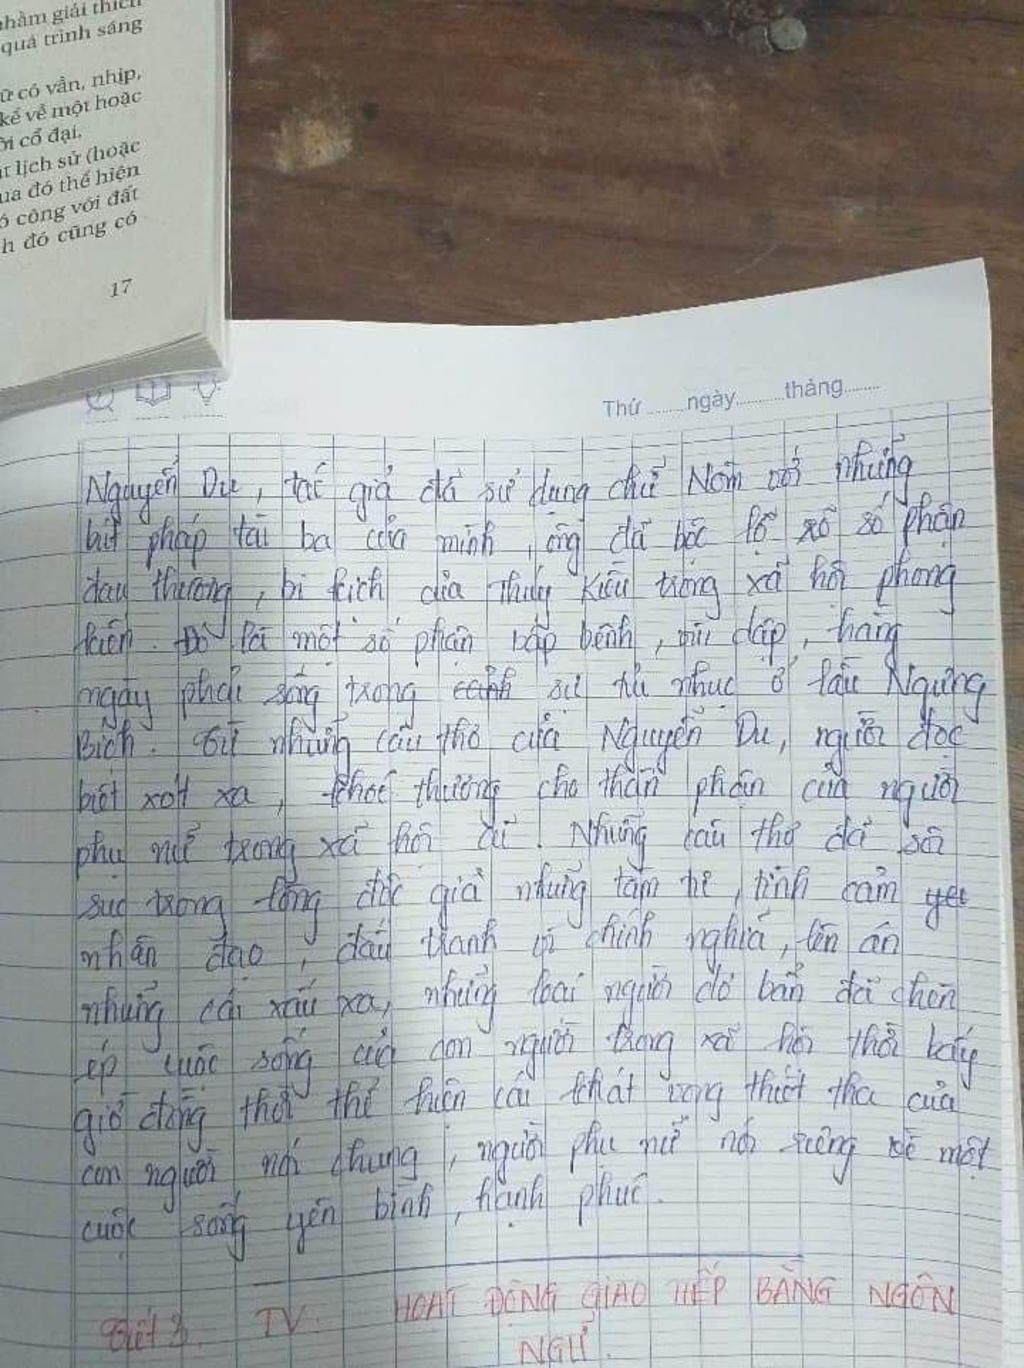 nhằm giải thích
quá trình sáng
ữ có vần, nhịp,
kể về một hoặc
ời cổ đại.
t lịch sử (hoặc
ua đó thể hiện
ó công với đất
h đó cũng có
17
Thứ ........ngày..........tháng........
Nguyễn Du, tác giả đã sử dụng chữ Nôm với những
bút pháp tài ba của mình, ông đã bộc lộ số phận
đau thương, bi kịch của Thúy Kiều trong xã hội phong
kiến. Đó là một số phận bấp bênh, vùi dập, hàng
ngày phải sống trong cảnh sự tủi nhục ở lầu Ngưng
Bích. Từ những câu thơ của Nguyễn Du, người đọc
biết xót xa, khóc thương cho thân phận của người
phụ nữ trong xã hội ấy. Những câu thơ đã sôi
sục trong lòng độc giả những tâm tư, tình cảm yêu
nhân đạo, đấu tranh vì chính nghĩa, lên án
những cái xấu xa, những loại người dơ bẩn đã chèn
ép cuộc sống của con người trong xã hội thời bấy
giờ đồng thời thể hiện cái khát vọng thiết tha của
con người nói chung, người phụ nữ nói riêng về một
cuộc sống yên bình, hạnh phúc.
Tiết 3. TV. HOẠT ĐỘNG GIAO TIẾP BẰNG NGÔN
NGỮ.